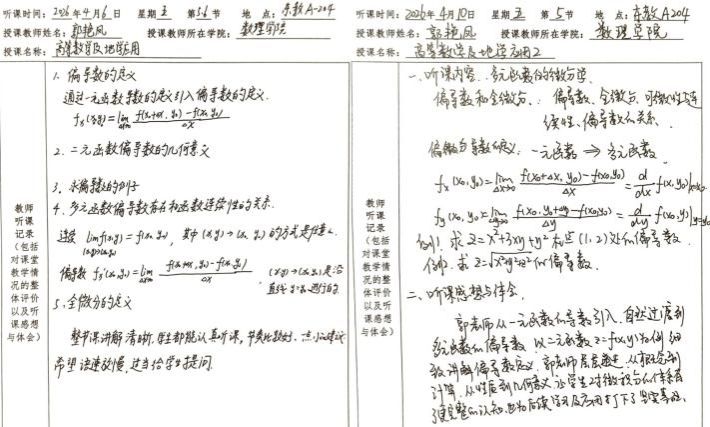 听课时间: 2026年4月6日 星期五 第5.6节 地点: 东教A-204
授课教师姓名: 郭艳凤 授课教师所在学院: 数理学院
授课名称: 高等数学及地学应用
教师
听课
记录
(包括
对课堂
教学情
况的整
体评价
以及听
课感想
与体会)
1. 偏导数的定义
通过一元函数导数的定义引入偏导数的定义.
fx(x,y)=lim Δx→0 f(x0+Δx, y0)-f(x0,y0)/Δx
2. 二元函数偏导数的几何意义
3. 求偏导数的例子
4. 多元函数偏导数存在和函数连续性的关系.
连续 lim f(x,y)=f(x0,y0), 其中(x,y)→(x0,y0)的方式是任意的.
(x,y)→(x0,y0)
偏导数 fx'(x0,y0)=lim f(x0+Δx,y0)-f(x0,y0)/Δx, (x,y)→(x0,y0)是沿
直线y=y0进行的
5. 全微分的定义
整节课讲解清晰, 学生都能认真听课, 节奏比较好. 一点小建议
希望语速放慢, 适当给学生提问.
听课时间: 2026年4月10日 星期五 第5节 地点: 东教A-204
授课教师姓名: 郭艳凤 授课教师所在学院: 数理学院
授课名称: 高等数学及地学应用2
教师
听课
记录
(包括
对课堂
教学情
况的整
体评价
以及听
课感想
与体会)
一、听课内容: 多元函数的微分学.
偏导数和全微分: 偏导数、全微分、可微性、连
续性、偏导数的关系.
偏微分导数的定义: 一元函数 ⇒ 多元函数
fx(x0,y0)=lim Δx→0 f(x0+Δx,y0)-f(x0,y0)/Δx = d/dx f(x,y0)|x=x0
fy(x0,y0)=lim f(x0,y0+Δy)-f(x0,y0)/Δy = d/dy f(x0,y)|y=y0
例1: 求z=x²+3xy+y²在点(1,2)处的偏导数.
例2: 求z=√x²+y²+z²的偏导数.
二、听课感想与体会.
郭老师从一元函数的导数引入, 自然过渡到
多元函数的偏导数, 以二元函数z=f(x,y)为例细
致讲解偏导数定义. 郭老师层层递进, 从概念到
计算, 从性质到几何意义, 让学生对微积分的体系有
了更完整的认知, 也为后续学习及应用打下了坚实基础.